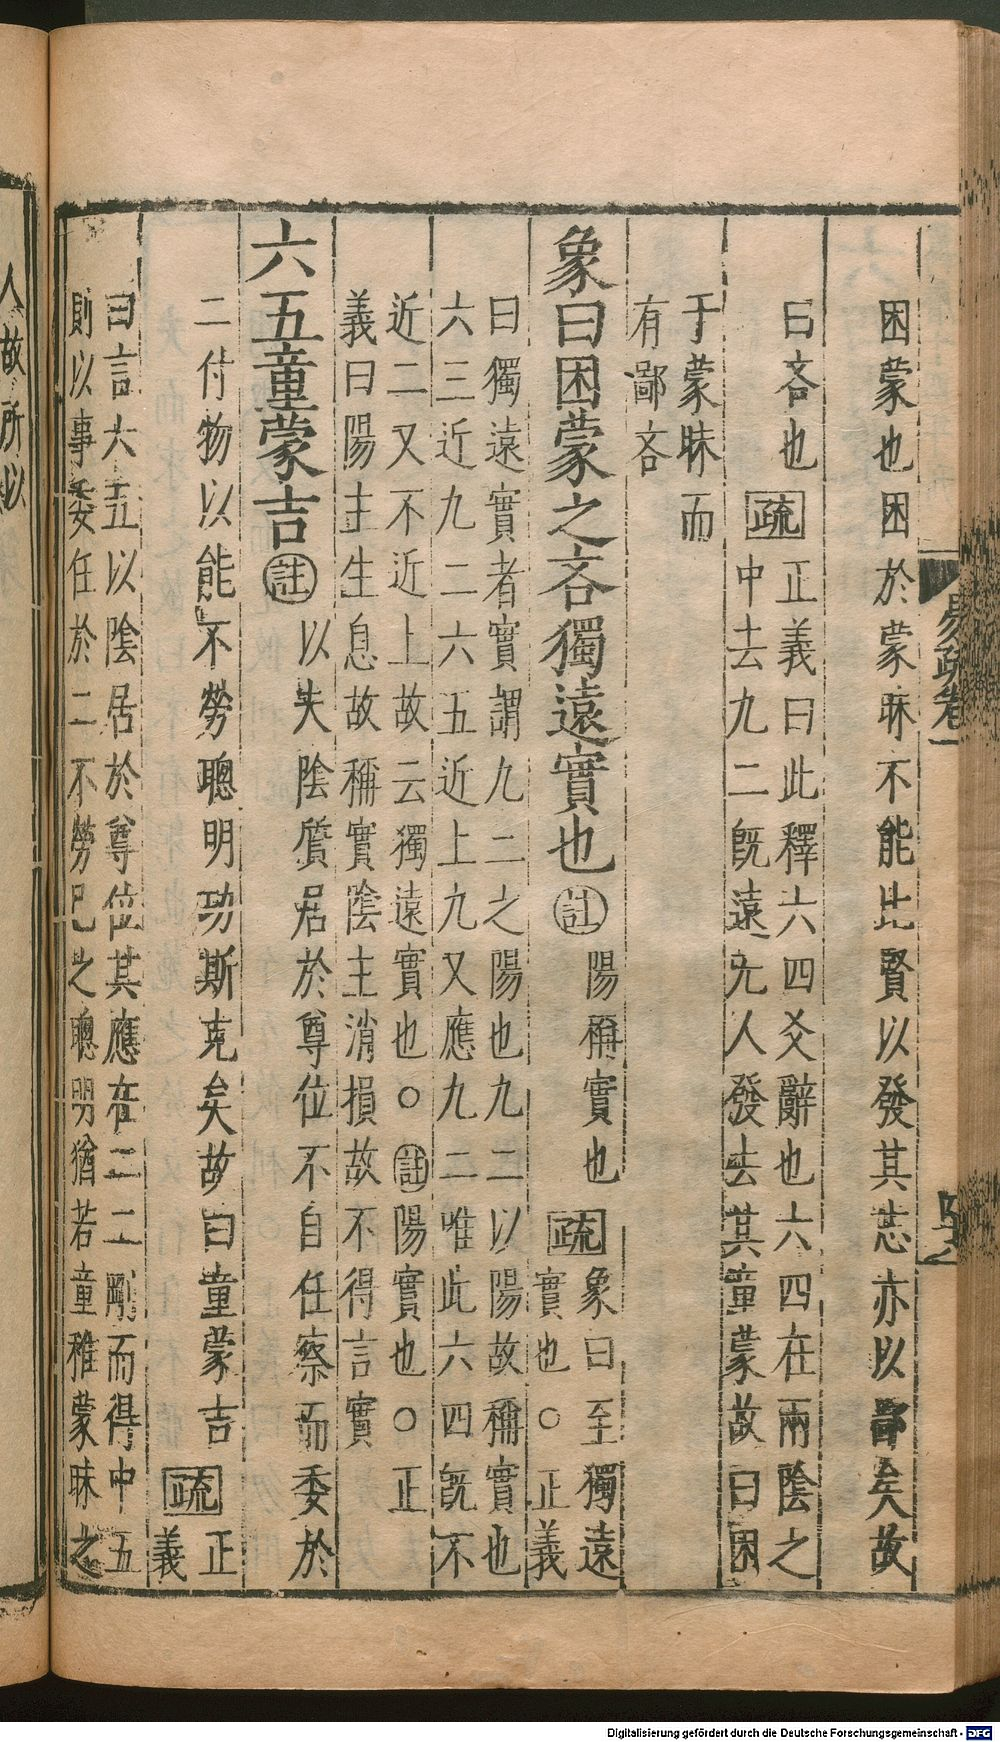 困蒙也困於蒙昧不能比賢以發其志亦以鄙矣故
曰吝也疏正義曰此釋六四爻辭也六四在兩陰之
中去九二既遠无人發去其童蒙故曰困
于蒙昧而
有鄙吝
象曰困蒙之吝獨遠實也註陽稱實也疏象曰至獨遠
實也○正義
曰獨遠實者實謂九二之陽也九二以陽故稱實也
六三近九二六五近上九又應九二唯此六四既不
近二又不近上故云獨遠實也○註陽實也○正
義曰陽主生息故稱實陰主消損故不得言實
六五童蒙吉註以夫陰質居於尊位不自任察而委於
二付物以能不勞聰明功斯克矣故曰童蒙吉疏正
義
曰言六五以陰居於尊位其應在二二剛而得中五
則以事委任於二不勞己之聰明猶若童稚蒙昧之
易疏卷一
人故所以
Digitalisierung gefördert durch die Deutsche Forschungsgemeinschaft - DFG